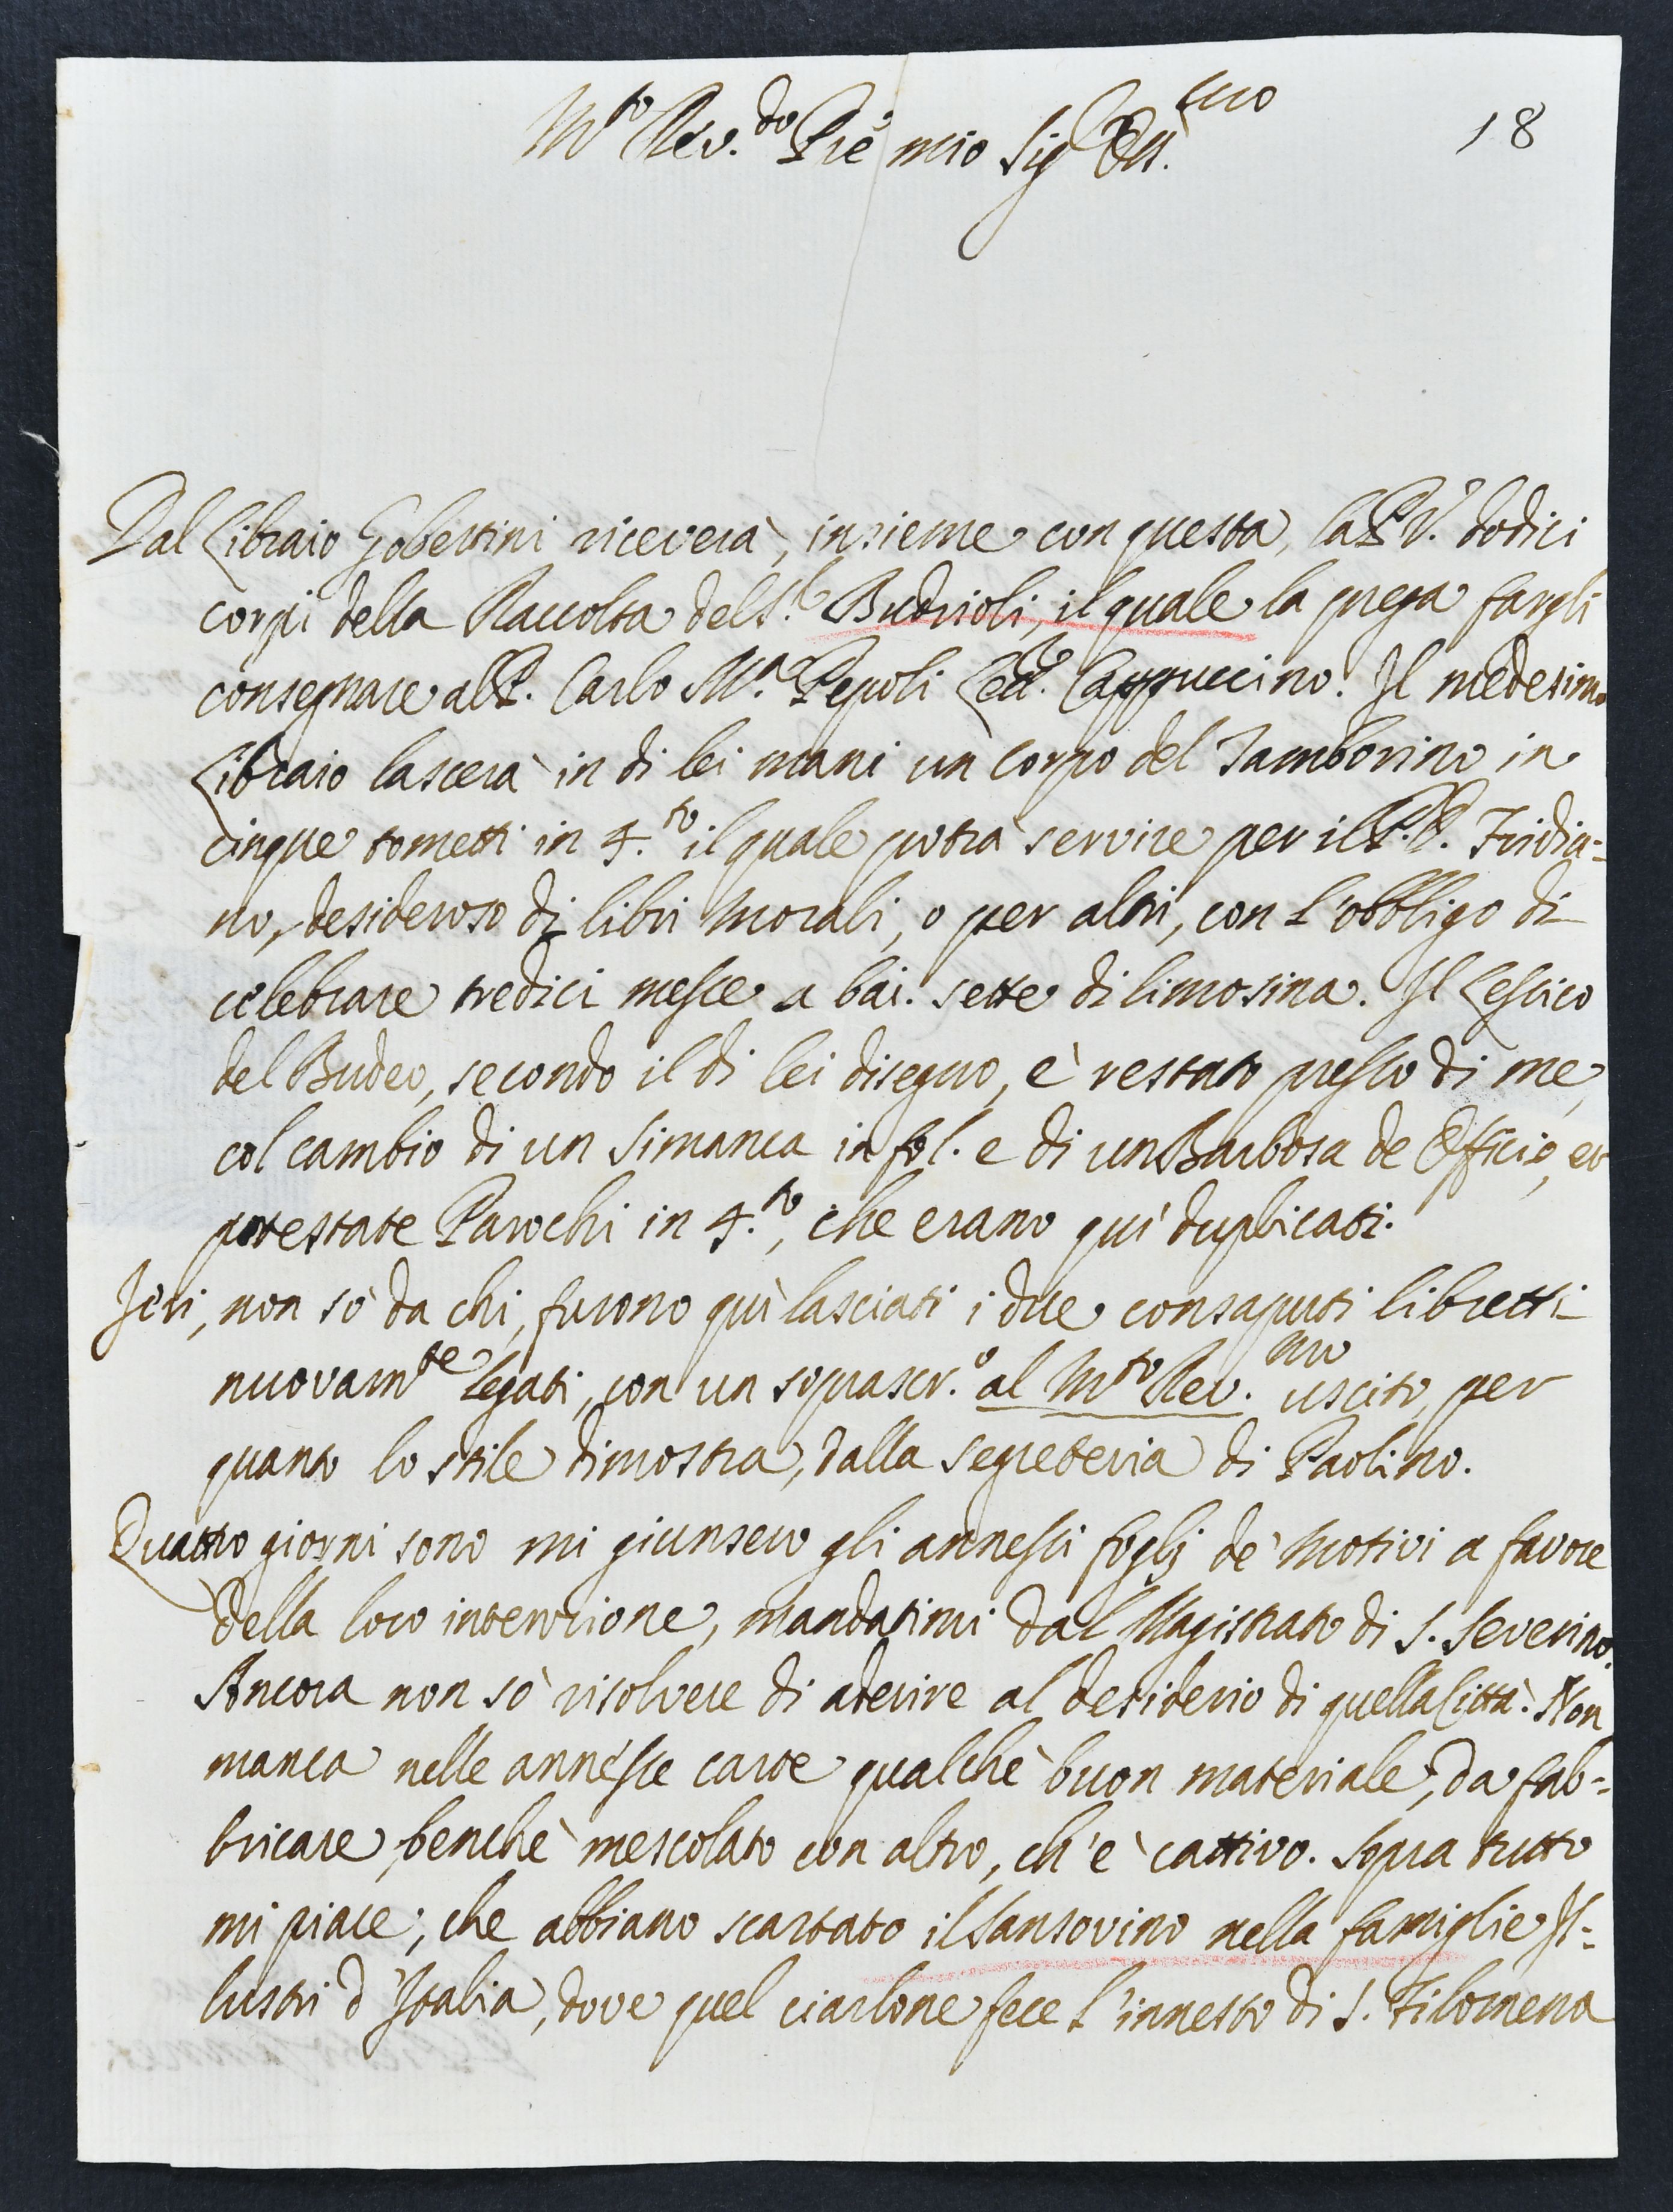 18
M.to Rev.do P̃re mio Sig.r Oss.mo
Dal Libraio Gobertini riceverà, insieme con questa, la P.V. dodici
corpi della Raccolta del S.r Budrioli, il quale la prega fargli
consegnare al P. Carlo M.a Pepoli Lett.re Cappuccino. Il medesimo
Libraio lascerà in di lei mani un corpo del Tamborino in
cinque tometti in 4.to il quale potrà servire per il P.D. Fridia=
no, desideroso di libri Morali, o per altri, con l'obbligo di
celebrare tredici messe a bai. sette di limosina. Il Lessico
del Budeo, secondo il di lei disegno, è restato presso di me,
col cambio di un Simanca in fol. e di un Barbosa de Officio, et
potestate Parochi in 4.to, che erano quì duplicati.
Jeri, non sò da chi, furono quì lasciati i due consaputi libretti
nuovam.te legati, con un soprascr.o al M.to Rev.mo uscito, per
quanto lo stile dimostra, dalla segreteria di Paolino.
Quattro giorni sono mi giunsero gli annessi foglj de' Motivi a favore
della loro intenzione, mandatimi dal Magistrato di S. Severino.
Ancora non sò risolvere di aderire al desiderio di quella Città. Non
manca nelle annesse carte qualche buon materiale, da fab=
bricare, benchè mescolato con altro, ch'è cattivo. Sopra tutto
mi piace, che abbiano scartato il Sansovino nella famiglie Il=
lustri d'Italia, dove quel ciarlone fece l'innesto di S. Filomena